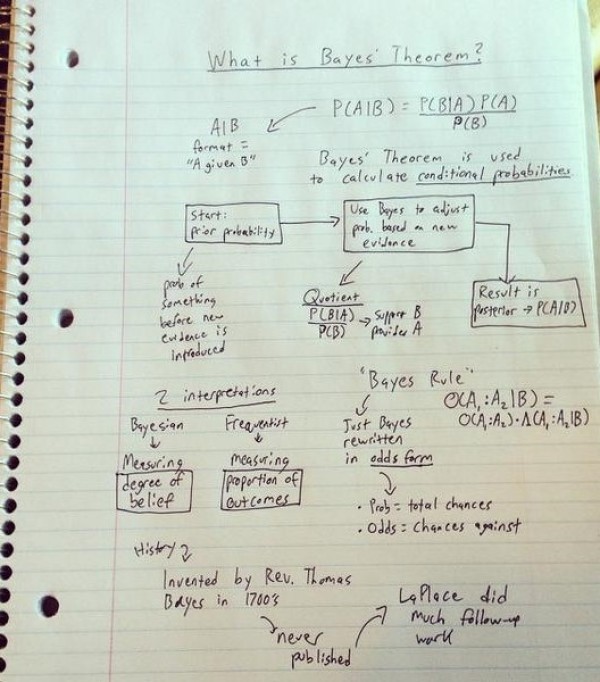 What is Bayes' Theorem?
P(A|B) = P(B|A) P(A)
P(B)
A|B
format =
"A given B"
Bayes' Theorem is used
to calculate conditional probabilities
Start:
prior probability
Use Bayes to adjust
prob. based on new
evidence
prob of
something
before new
evidence is
introduced
Quotient
P(B|A)
P(B)
→ support B
provides A
Result is
posterior → P(A|B)
2 interpretations
Bayesian
Measuring
degree of
belief
Frequentist
measuring
proportion of
outcomes
"Bayes Rule"
Just Bayes
rewritten
in odds form
O(A₁:A₂|B) =
O(A₁:A₂)·Λ(A₁:A₂|B)
• Prob = total chances
• Odds = chances against
History?
Invented by Rev. Thomas
Bayes in 1700's
never
published
LaPlace did
much follow-up
work